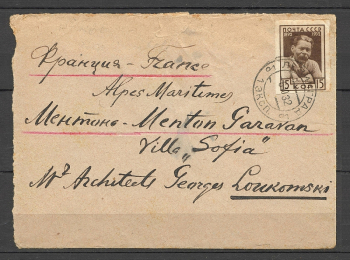 ПОЧТА СССР
15 КОП 15
Франция - France
Alpes Maritimes
Ментона - Menton Garavan
Villa „Sofia"
Mr Architects Georges Loukomski